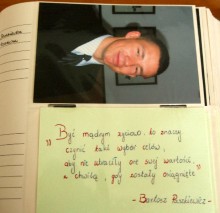 „Być mądrym życiowo, to znaczy
czynić taki wybór celów,
aby nie utraciły one swej wartości,
z chwilą, gdy zostały osiągnięte"
- Bartosz